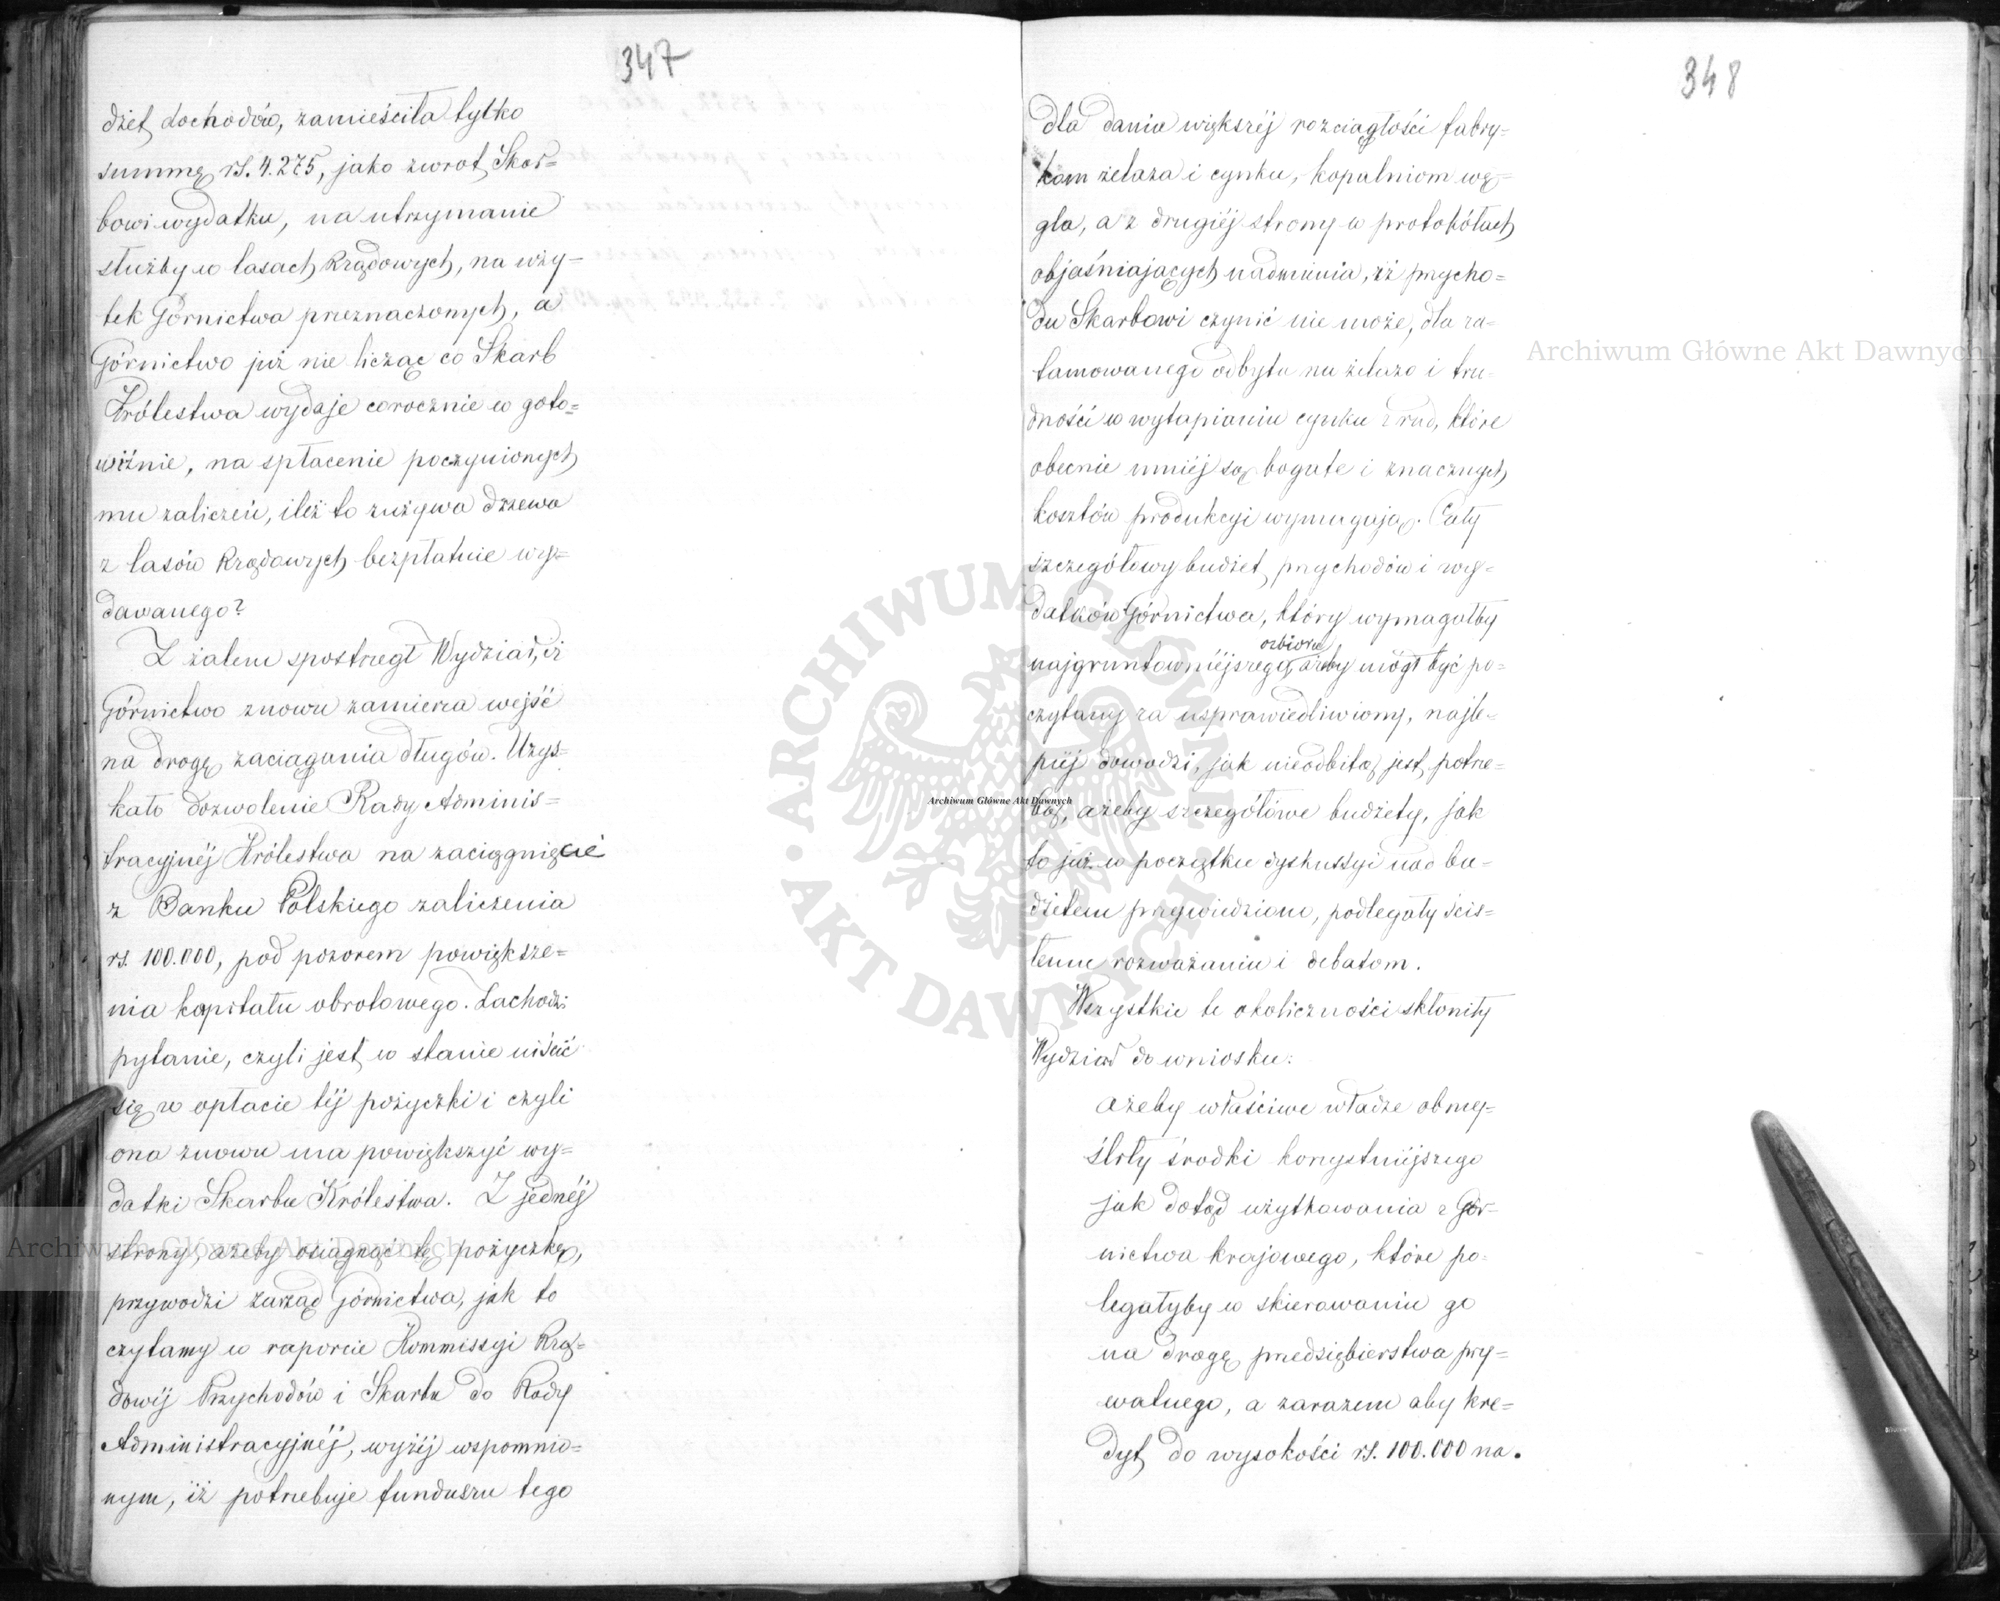 347
dżet dochodów, zamieściła tylko
summę rs. 4.275, jako zwrot Skar=
bowi wydatku, na utrzymanie
służby w lasach Rządowych, na uży=
tek Górnictwa przeznaczonych, a
Górnictwo już nie licząc co Skarb
Królestwa wydaje corocznie w goto=
wiźnie, na spłacenie poczynionych
mu zaliczeń, ileż to zużywa drzewa
z lasów Rządowych bezpłatnie wy=
dawanego?
Z żalem spostrzegł Wydział, iż
Górnictwo znowu zamierza wejść
na drogę zaciągania długów. Uzys=
kało dozwolenie Rady Adminis=
tracyjnéj Królestwa na zaciągnięcie
z Banku Polskiego zaliczenia
rs. 100.000, pod pozorem powiększe=
nia kapitału obrotowego. Zachodzi
pytanie, czyli jest w stanie uiścić
się w opłacie téj pożyczki i czyli
ona znowu ma powiększyć wy=
datki Skarbu Królestwa. Z jednéj
strony, ażeby osiągnąć tę pożyczkę,
przywodzi zarząd górnictwa, jak to
czytamy w raporcie Kommissyi Rzą=
dowéj Przychodów i Skarbu do Rady
Administracyjnéj, wyżéj wspomnio=
nym, iż potrzebuje funduszu tego
348
dla dania większéj rozciągłości fabry=
kom żelaza i cynku, kopalniom wę=
gla, a z drugiéj strony w protokółach
objaśniających nadmienia, iż przycho=
du Skarbowi czynić nie może, dla za=
tamowanego odbytu na żelazo i tru=
dności w wytapianiu cynku z rud, które
obecnie mniéj są bogate i znacznych
kosztów produkcyi wymagają. Cały
szczegółowy budżet przychodów i wy=
datków Górnictwa, który wymagałby
ozbioru
najgruntowniéjszego, ażeby mógł być po=
czytany za usprawiedliwiony, najle=
piéj dowodzi, jak nieodbitą jest potrze=
bą, ażeby szczegółowe budżety, jak
to już w początku dyskussyi nad bu=
dżetem przywiedziono, podlegały ścis=
łemu rozważaniu i debatom.
Wszystkie te okoliczności skłoniły
Wydział do wniosku:
ażeby właściwe władze obmy=
śliły środki korzystniéjszego
jak dotąd użytkowania z Gór=
nictwa krajowego, które po=
legałyby w skierowaniu go
na drogę przedsiębierstwa pry=
watnego, a zarazem aby kre=
dyt do wysokości rs. 100.000 na.
Archiwum Główne Akt Dawnych
Archiwum Główne Akt Dawnych
Archiwum Główne Akt Dawnych
ARCHIWUM GŁÓWNE • AKT DAWNYCH •